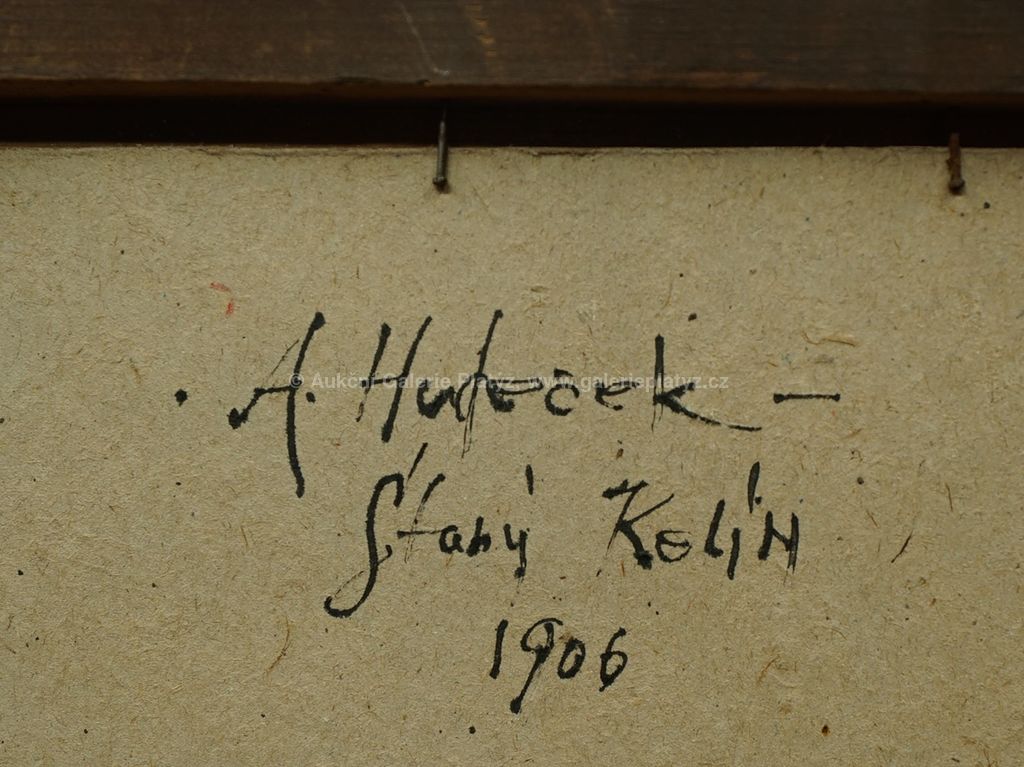 A. Hudecek –
Starý Kolín
1906
© Aukční Galerie Platýz, www.galerieplatyz.cz